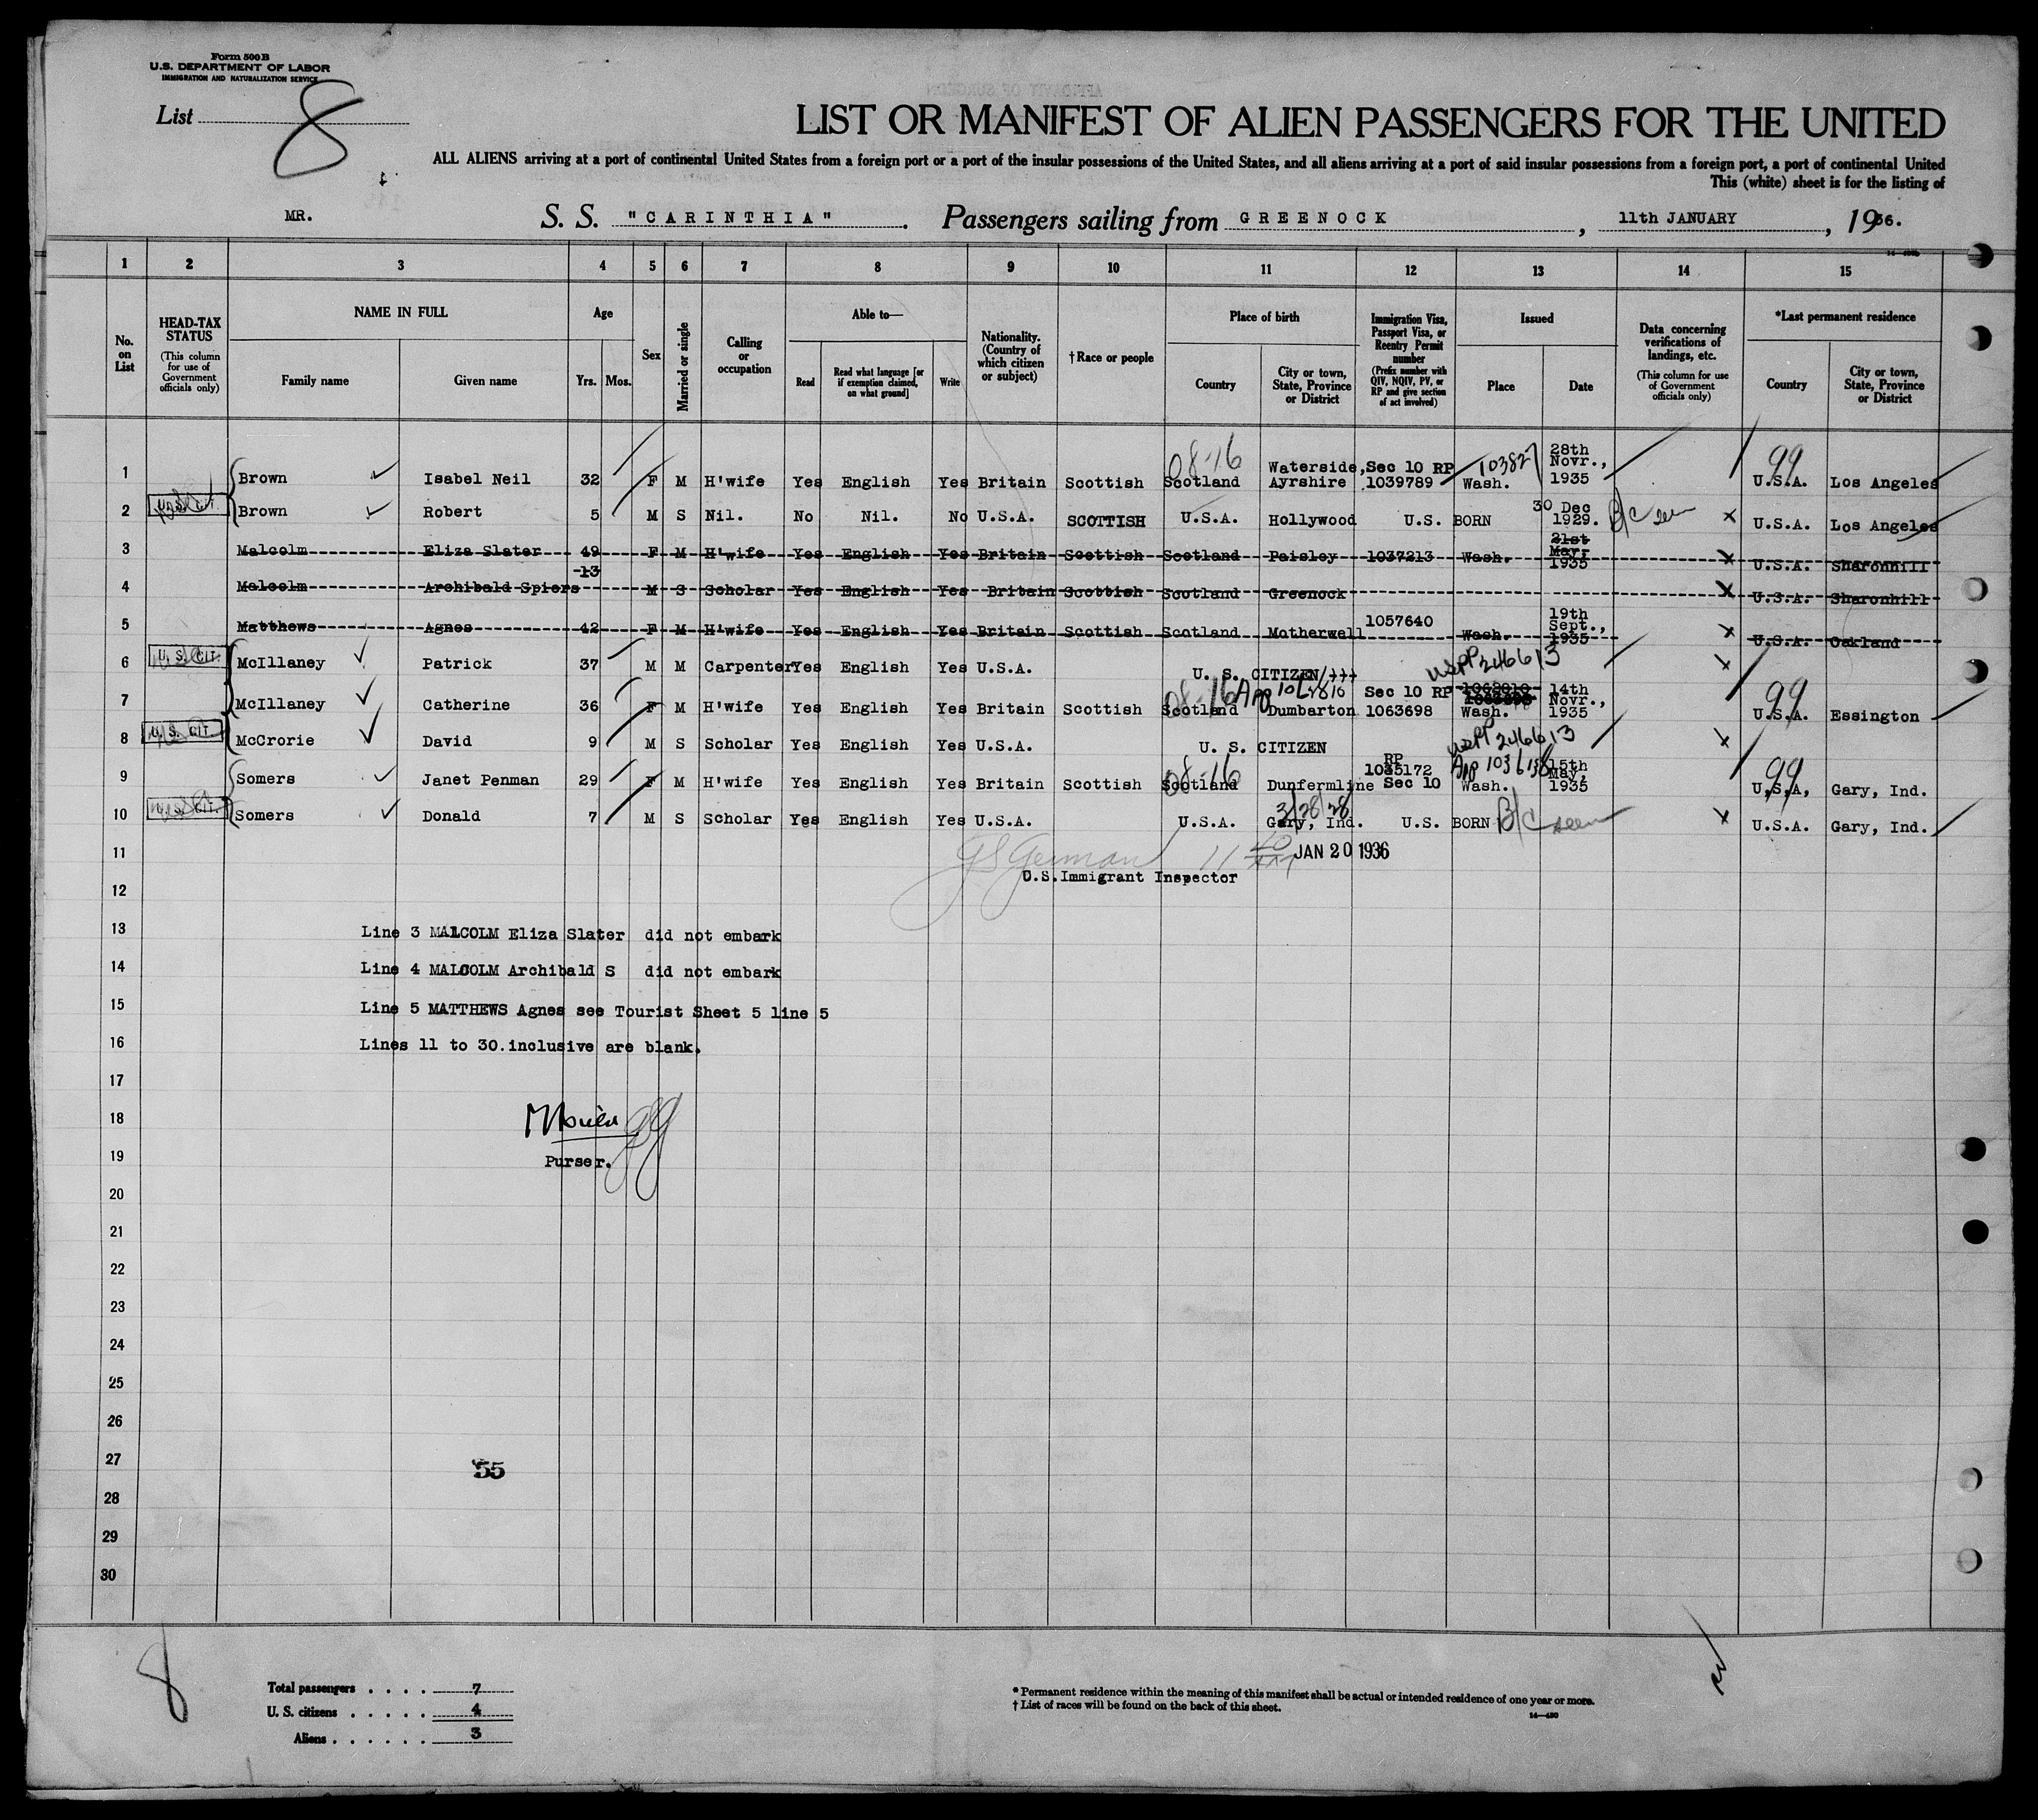 Form 500B
U.S. DEPARTMENT OF LABOR
IMMIGRATION AND NATURALIZATION SERVICE
List 8
LIST OR MANIFEST OF ALIEN PASSENGERS FOR THE UNITED
ALL ALIENS arriving at a port of continental United States from a foreign port or a port of the insular possessions of the United States, and all aliens arriving at a port of said insular possessions from a foreign port, a port of continental United
This (white) sheet is for the listing of
MR. S. S. "CARINTHIA". Passengers sailing from GREENOCK, 11th JANUARY, 1936.
1 2 3 4 5 6 7 8 9 10 11 12 13 14 15
No. on List
HEAD-TAX STATUS (This column for use of Government officials only)
NAME IN FULL
Family name
Given name
Age
Yrs. Mos.
Sex
Married or single
Calling or occupation
Able to—
Read
Read what language [or if exemption claimed, on what ground]
Write
Nationality. (Country of which citizen or subject)
†Race or people
Place of birth
Country
City or town, State, Province or District
Immigration Visa, Passport Visa, or Reentry Permit number (Prefix number with QIV, NQIV, PV, or RP and give section of act involved)
Issued
Place
Date
Data concerning verifications of landings, etc. (This column for use of Government officials only)
*Last permanent residence
Country
City or town, State, Province or District
1 Brown Isabel Neil 32 F M H'wife Yes English Yes Britain Scottish 08-16 Scotland Waterside, Ayrshire Sec 10 RP 1039789 10382 Wash. 28th Novr., 1935 99 U.S.A. Los Angeles
2 U.S. CIT. Brown Robert 5 M S Nil. No Nil. No U.S.A. SCOTTISH U.S.A. Hollywood U.S. BORN 30 Dec 1929. B/C seen U.S.A. Los Angeles
3 Malcolm Eliza Slater 49 F M H'wife Yes English Yes Britain Scottish Scotland Paisley 1037213 Wash. 21st May, 1935 U.S.A. Sharonhill
4 Malcolm Archibald Spiers 13 M S Scholar Yes English Yes Britain Scottish Scotland Greenock U.S.A. Sharonhill
5 Matthews Agnes 42 F M H'wife Yes English Yes Britain Scottish Scotland Motherwell 1057640 Wash. 19th Sept., 1935 U.S.A. Oakland
6 U. S. CIT. McIllaney Patrick 37 M M Carpenter Yes English Yes U.S.A. U. S. CITIZEN USPP 246613
7 McIllaney Catherine 36 F M H'wife Yes English Yes Britain Scottish 08-16 Scotland App Dumbarton Sec 10 RP 1063698 Wash. 14th Novr., 1935 99 U.S.A. Essington
8 U. S. CIT. McCrorie David 9 M S Scholar Yes English Yes U.S.A. U. S. CITIZEN USPP 246613
9 Somers Janet Penman 29 F M H'wife Yes English Yes Britain Scottish 08-16 Scotland Dunfermline RP 1035172 Sec 10 App Wash. 15th May, 1935 99 U,S,A, Gary, Ind.
10 U. S. CIT. Somers Donald 7 M S Scholar Yes English Yes U.S.A. U.S.A. 3/28/28 Gary, Ind. U.S. BORN B/C seen U.S.A. Gary, Ind.
11 JAN 20 1936
U.S.Immigrant Inspector
12
13 Line 3 MALCOLM Eliza Slater did not embark
14 Line 4 MALCOLM Archibald S did not embark
15 Line 5 MATTHEWS Agnes see Tourist Sheet 5 line 5
16 Lines 11 to 30.inclusive are blank.
17
18
19 Purser.
20
21
22
23
24
25
26
27 55
28
29
30
8
Total passengers . . . . 7
U. S. citizens . . . . . 4
Aliens . . . . . . 3
* Permanent residence within the meaning of this manifest shall be actual or intended residence of one year or more.
† List of races will be found on the back of this sheet.
14—430